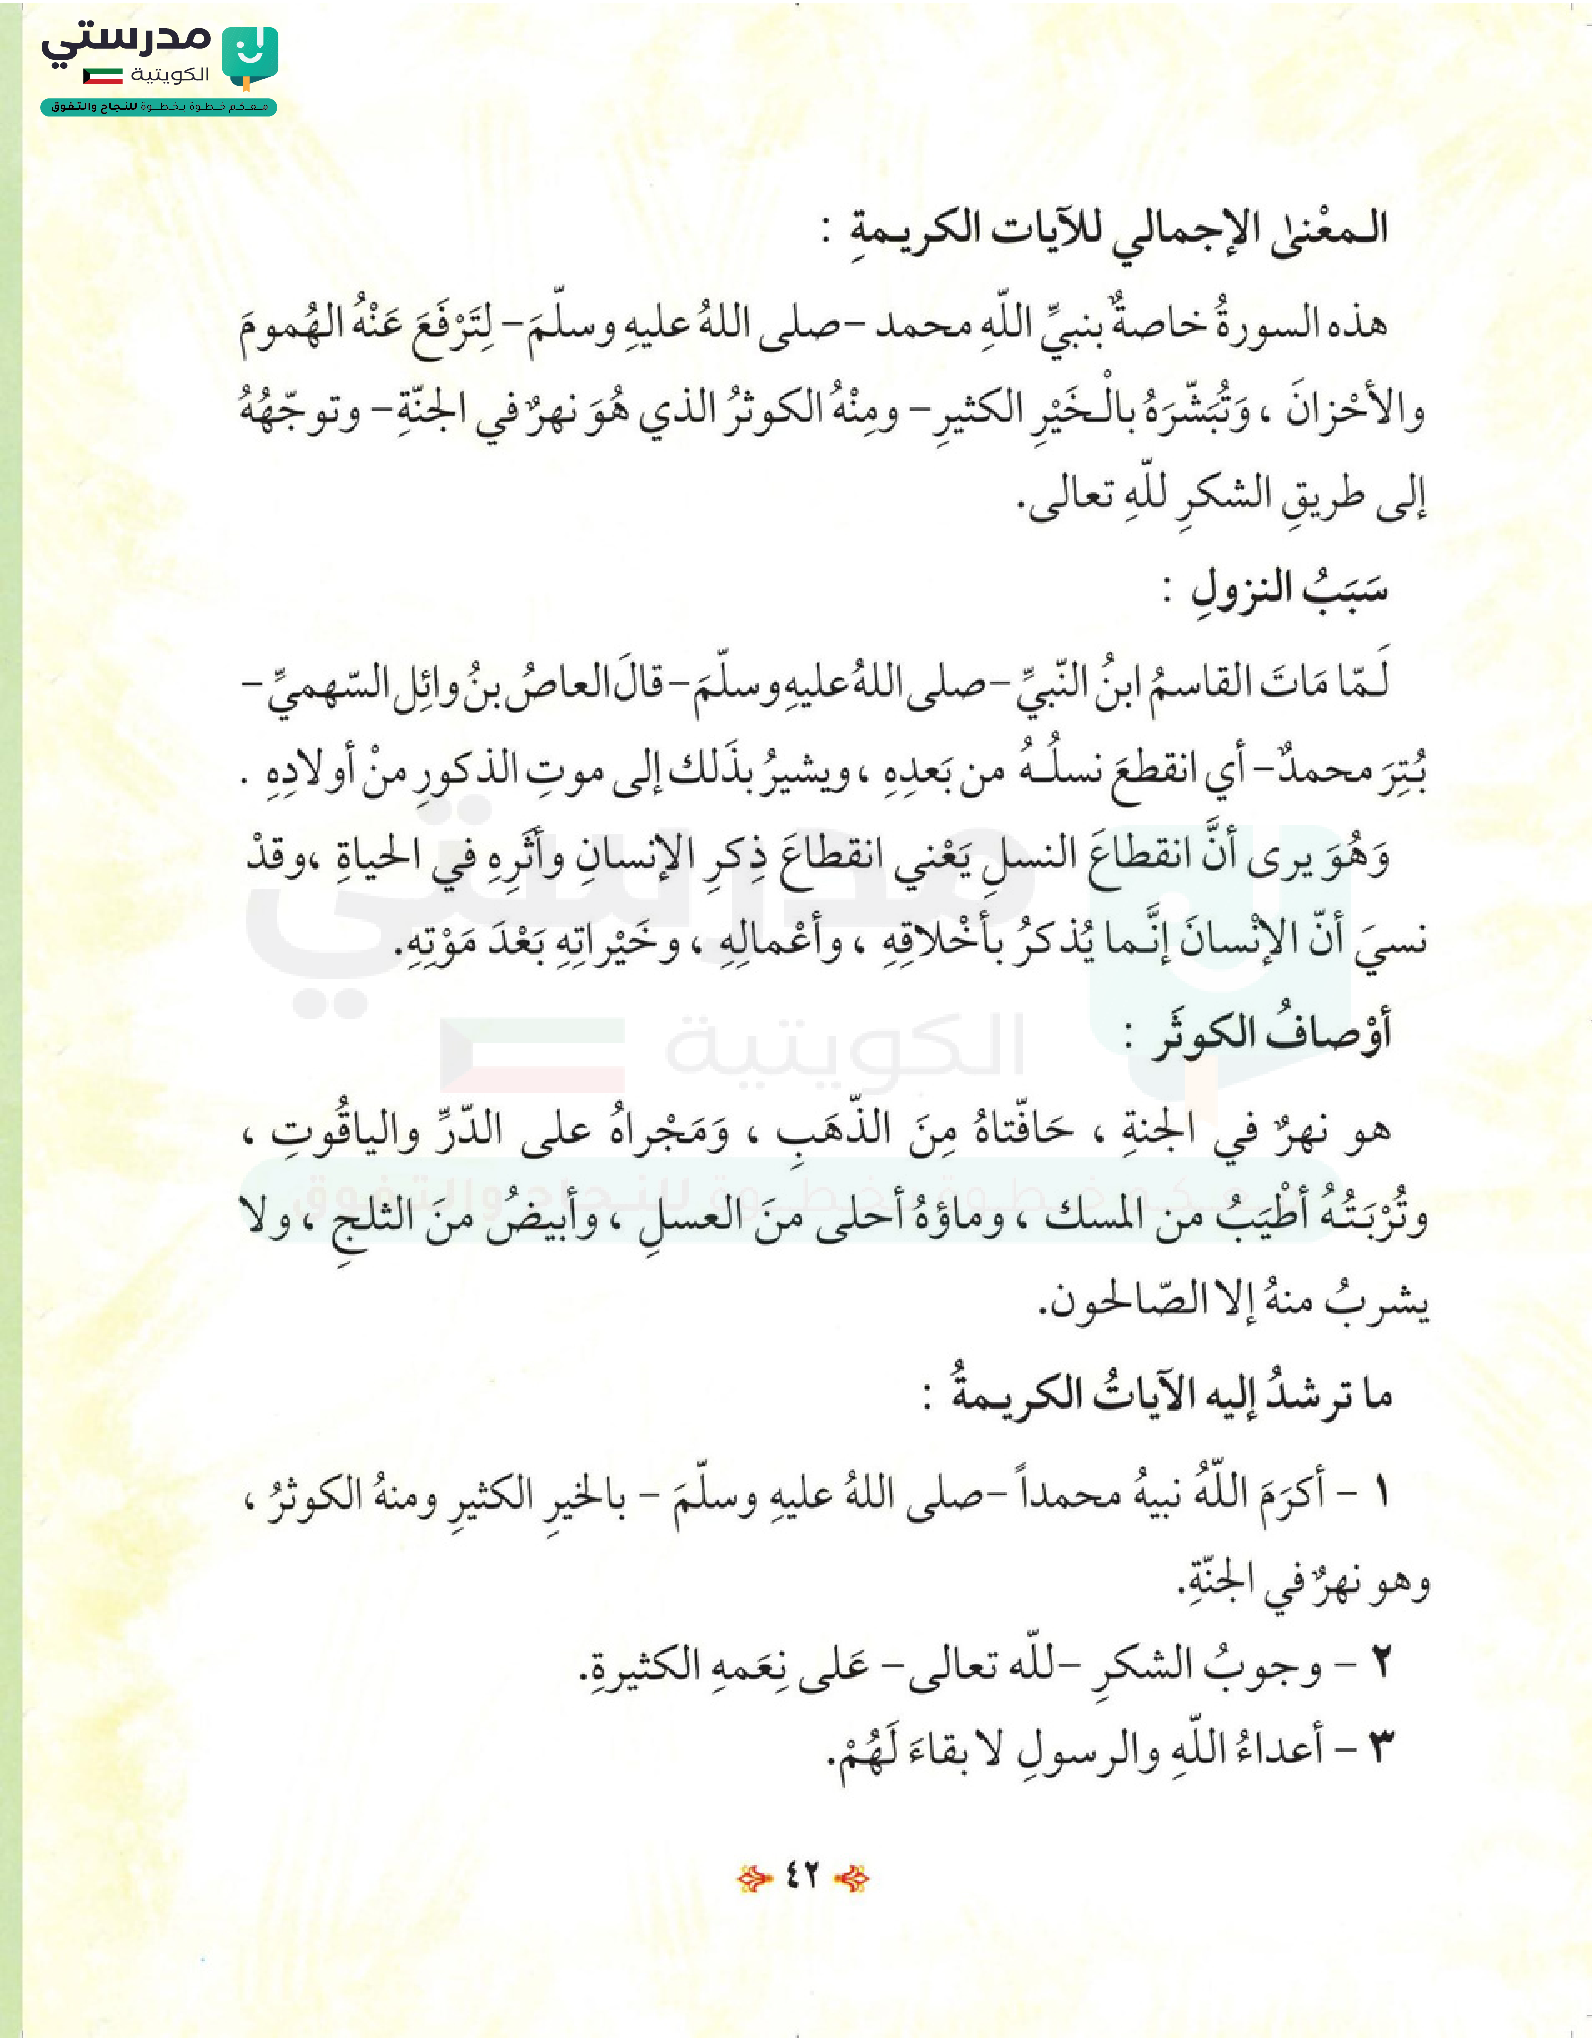 مدرستي
الكويتية
معكم خطوة بخطوة للنجاح والتفوق
الـمعْنىٰ الإجمالي للآيات الكريـمةِ :
هذه السورةُ خاصةٌ بنبيِّ اللّهِ محمد -صلى اللهُ عليهِ وسلّمَ- لِتَرْفَعَ عَنْهُ الهُمومَ
والأحْزانَ ، وَتُبَشّرَهُ بالْـخَيْرِ الكثيرِ- ومِنْهُ الكوثرُ الذي هُوَ نهرٌ في الجنّةِ- وتوجّهُهُ
إلى طريقِ الشكرِ للّهِ تعالى.
سَبَبُ النزولِ :
لَـمّا مَاتَ القاسمُ ابنُ النّبيِّ -صلى اللهُ عليهِ وسلّمَ- قالَ العاصُ بنُ وائِل السّهميِّ -
بُتِرَ محمدٌ- أي انقطعَ نسلُـهُ من بَعدِهِ ، ويشيرُ بذَلك إلى موتِ الذكورِ منْ أولادِهِ .
وَهُوَ يرى أنَّ انقطاعَ النسلِ يَعْني انقطاعَ ذِكرِ الإنسانِ وأثَرِهِ في الحياةِ ،وقدْ
نسيَ أنّ الإنْسانَ إنَّـما يُذكرُ بأخْلاقِهِ ، وأعْمالِهِ ، وخَيْراتِهِ بَعْدَ مَوْتِهِ.
أوْصافُ الكوثَر :
هو نهرٌ في الجنةِ ، حَافّتاهُ مِنَ الذّهَبِ ، وَمَجْراهُ على الدّرِّ والياقُوتِ ،
وتُرْبَـتُـهُ أطْيَبُ من المسك ، وماؤهُ أحلى منَ العسلِ ، وأبيضُ منَ الثلجِ ، ولا
يشربُ منهُ إلا الصّالحون.
ما ترشدُ إليه الآياتُ الكريـمةُ :
١ - أكرَمَ اللّهُ نبيهُ محمداً -صلى اللهُ عليهِ وسلّمَ - بالخيرِ الكثيرِ ومنهُ الكوثرُ ،
وهو نهرٌ في الجنّةِ.
٢ - وجوبُ الشكرِ -للّه تعالى- عَلى نِعَمهِ الكثيرةِ.
٣ - أعداءُ اللّهِ والرسولِ لا بقاءَ لَهُمْ.
٤٢